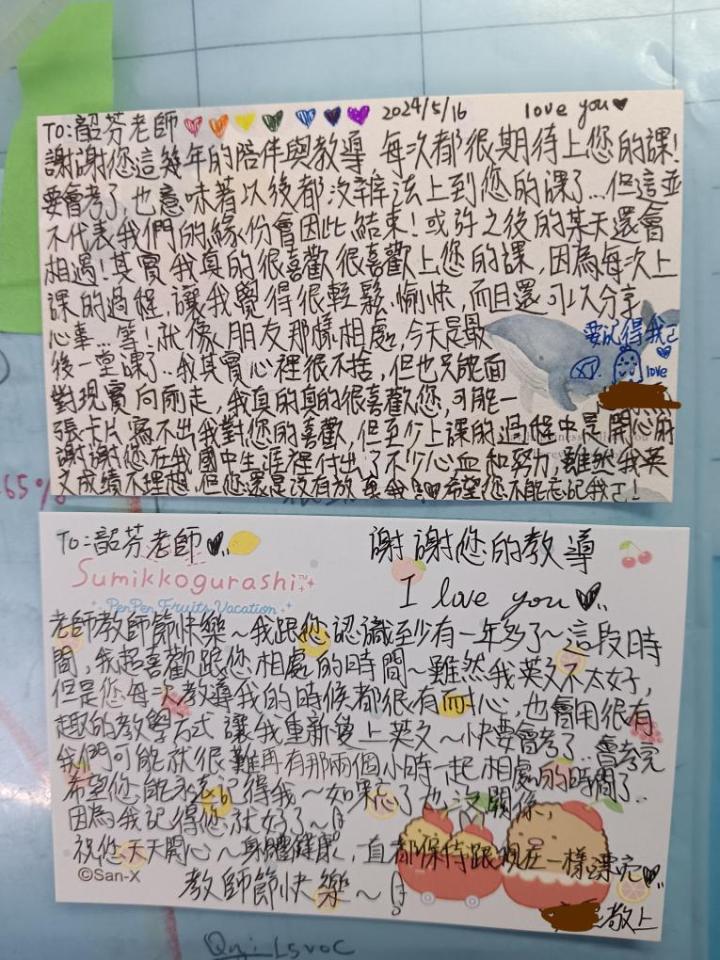 To:韶芬老師 2024/5/16 love you
謝謝您這幾年的陪伴與教導,每次都很期待上您的課!
要會考了,也意味著以後都沒辦法上到您的課了...但這並
不代表我們的緣份會因此結束!或許之後的某天還會
相遇!其實我真的很喜歡很喜歡上您的課,因為每次上
課的過程,讓我覺得很輕鬆、愉快,而且還可以分享
心事...等!就像朋友那樣相處,今天是最
後一堂課了..我其實心裡很不捨,但也只能面
對現實向前走,我真的真的很喜歡您,可能一
張卡片寫不出我對您的喜歡,但至少上課的過程中是開心的
謝謝您在我國中生涯裡付出了不少心血和努力,雖然我英
文成績不理想,但您還是沒有放棄我!希望您不能忘記我ㄛ!
要記得我ㄛ
love
65%
To:韶芬老師
謝謝您的教導
I love you
Sumikkogurashi™
PenPen Fruits Vacation
老師教師節快樂~我跟您認識至少有一年多了~這段時
間,我超喜歡跟您相處的時間~雖然我英文不太好,
但是您每次教導我的時候都很有耐心,也會用很有
趣的教學方式讓我重新愛上英文~快要會考了...會考完
我們可能就很難再有那兩個小時一起相處的時間了..
希望您能永遠記得我~如果忘了也沒關係,
因為我記得您就好了~
祝您天天開心~身體健康,一直都保持跟現在一樣漂亮
©San-X
教師節快樂~
敬上